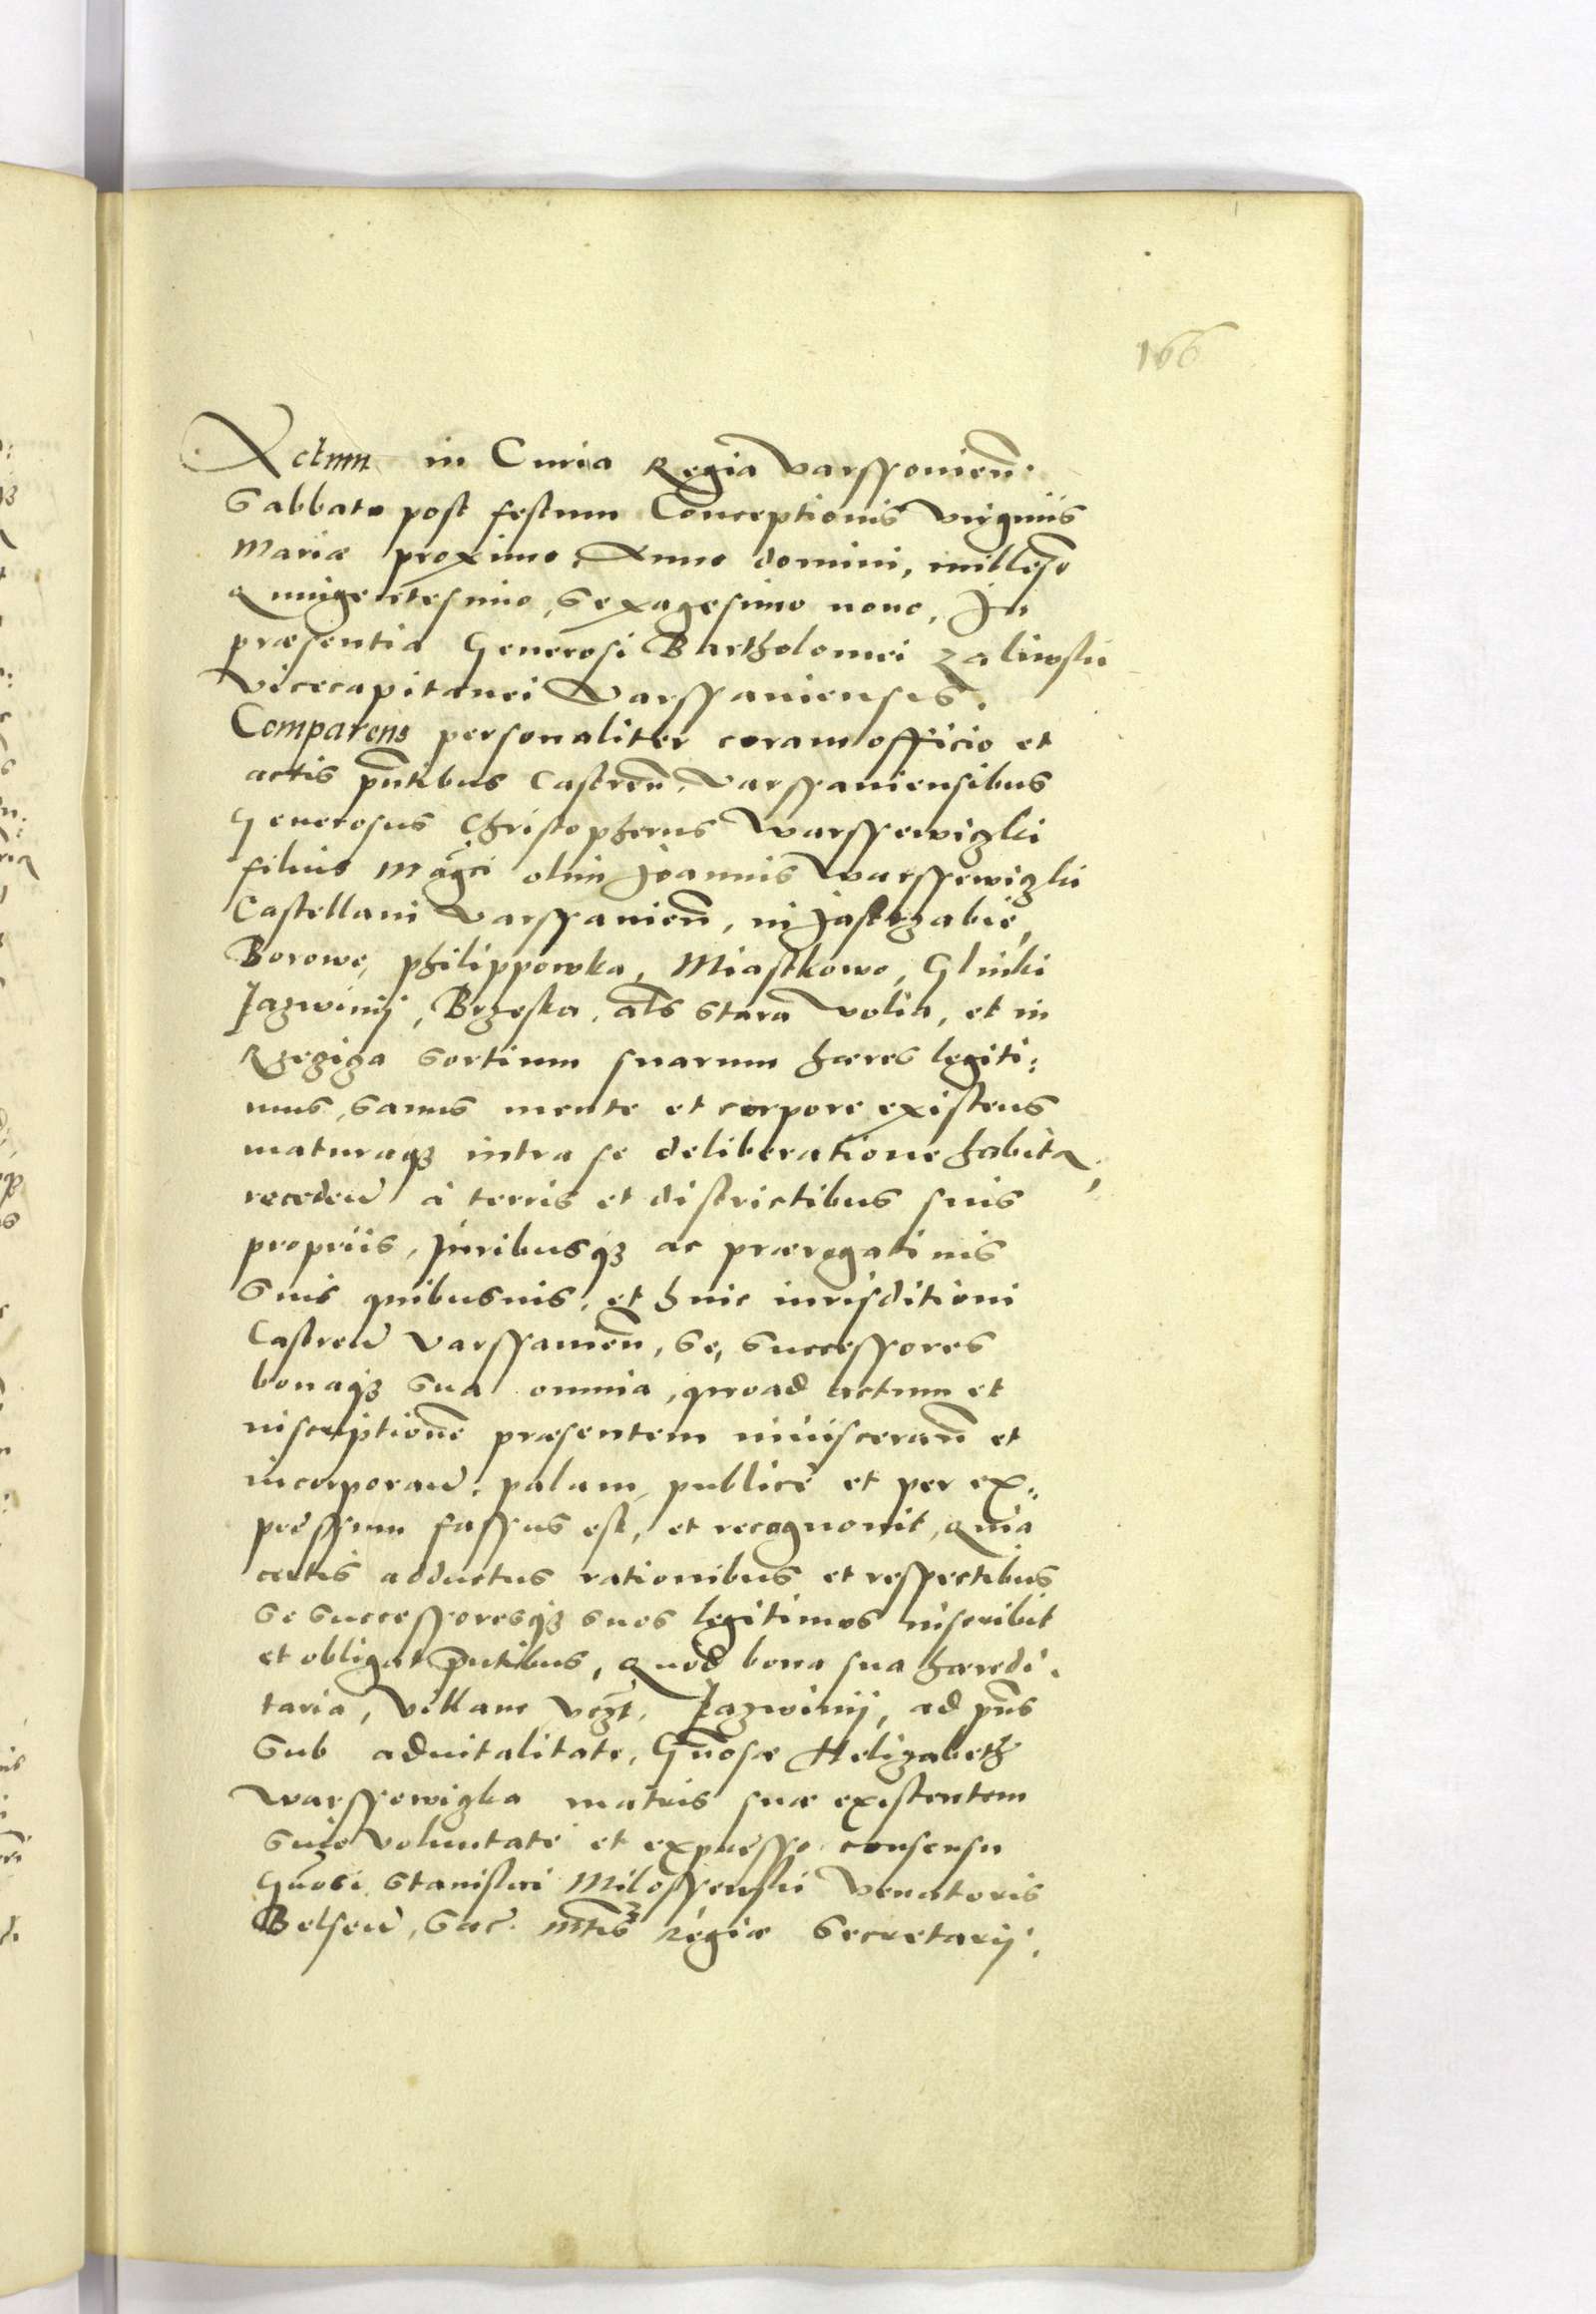 166
Actum in Curia Regia varssovien̄.
Sabbato post festum Conceptionis virginis
Mariæ proximo, Anno domini, milleso
Quingentesimo, sexagesimo nono, In
præsentia Generosi Bartholomei Zaliwski
vicecapitanei Varssaviensis.
Comparens personaliter coram officio et
actis pn̄tibus Castren̄. Varssaviensibus
Generosus Christopherus Warssewizki
filius Mag̃ci olim Joannis Warssewizki
Castellani Varssavien̄, in Jastrzabie,
Borowe, philippowka, Miastkowo, Glinki
Jazwinij, Brzeska, al̄s stara volia, et in
Rzeziza sortium suarum hæres legiti:
mus, sanus mente et corpore existens
maturaqз intra se deliberatione habita,
receden̄ à terris et districtibus suis
propriis, Juribusqз ac prærogativis
suis quibusvis, et huic iurisditioni
Castren̄ varssavien̄, se, successores
bonaqз sua omnia, quoad actum et
inscriptione præsentem invisceran̄ et
incorporan̄: palam, publicè et per ex:
pressum fassus est, et recognovit, quia
certis adductus rationibus et respectibus
se successoresqз suos legitimos inscribit
et obligat pn̄tibus, Quod bona sua hæredi.
taria, villam vcz̃t, Jazwinij, ad pn̄s
sub advitalitate, Gn̄osæ Helizabeth
Warssewizka matris suæ existentem
voluntate et expresso consensu
Gn̄osi Stanislai Milossewski venatoris
Belsen̄, Sac. Mtis Regiæ Secretarij.